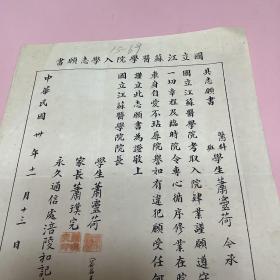 15-69
國立江蘇醫學院入學志願書
具志願書醫科班學生蕭靈荷今承
國立江蘇醫學院考取入院肄業謹願遵守
一切章程及臨時院令專心循序修業在院
束身自愛不玷辱院譽如有違犯願受任何
謹立此志願書為證敬上
國立江蘇醫學院院長
學生蕭靈荷
家長蕭璞完
永久通信處涪陵和記
中華民國卅年十一月十三日